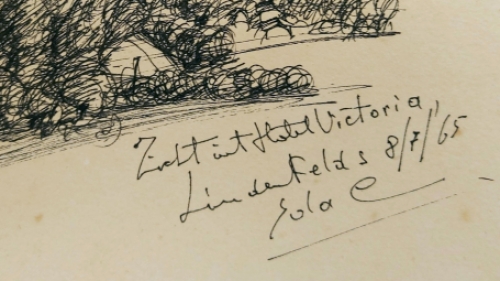 Zicht uit Hotel Victoria,
Lindenfelds 8/7/65